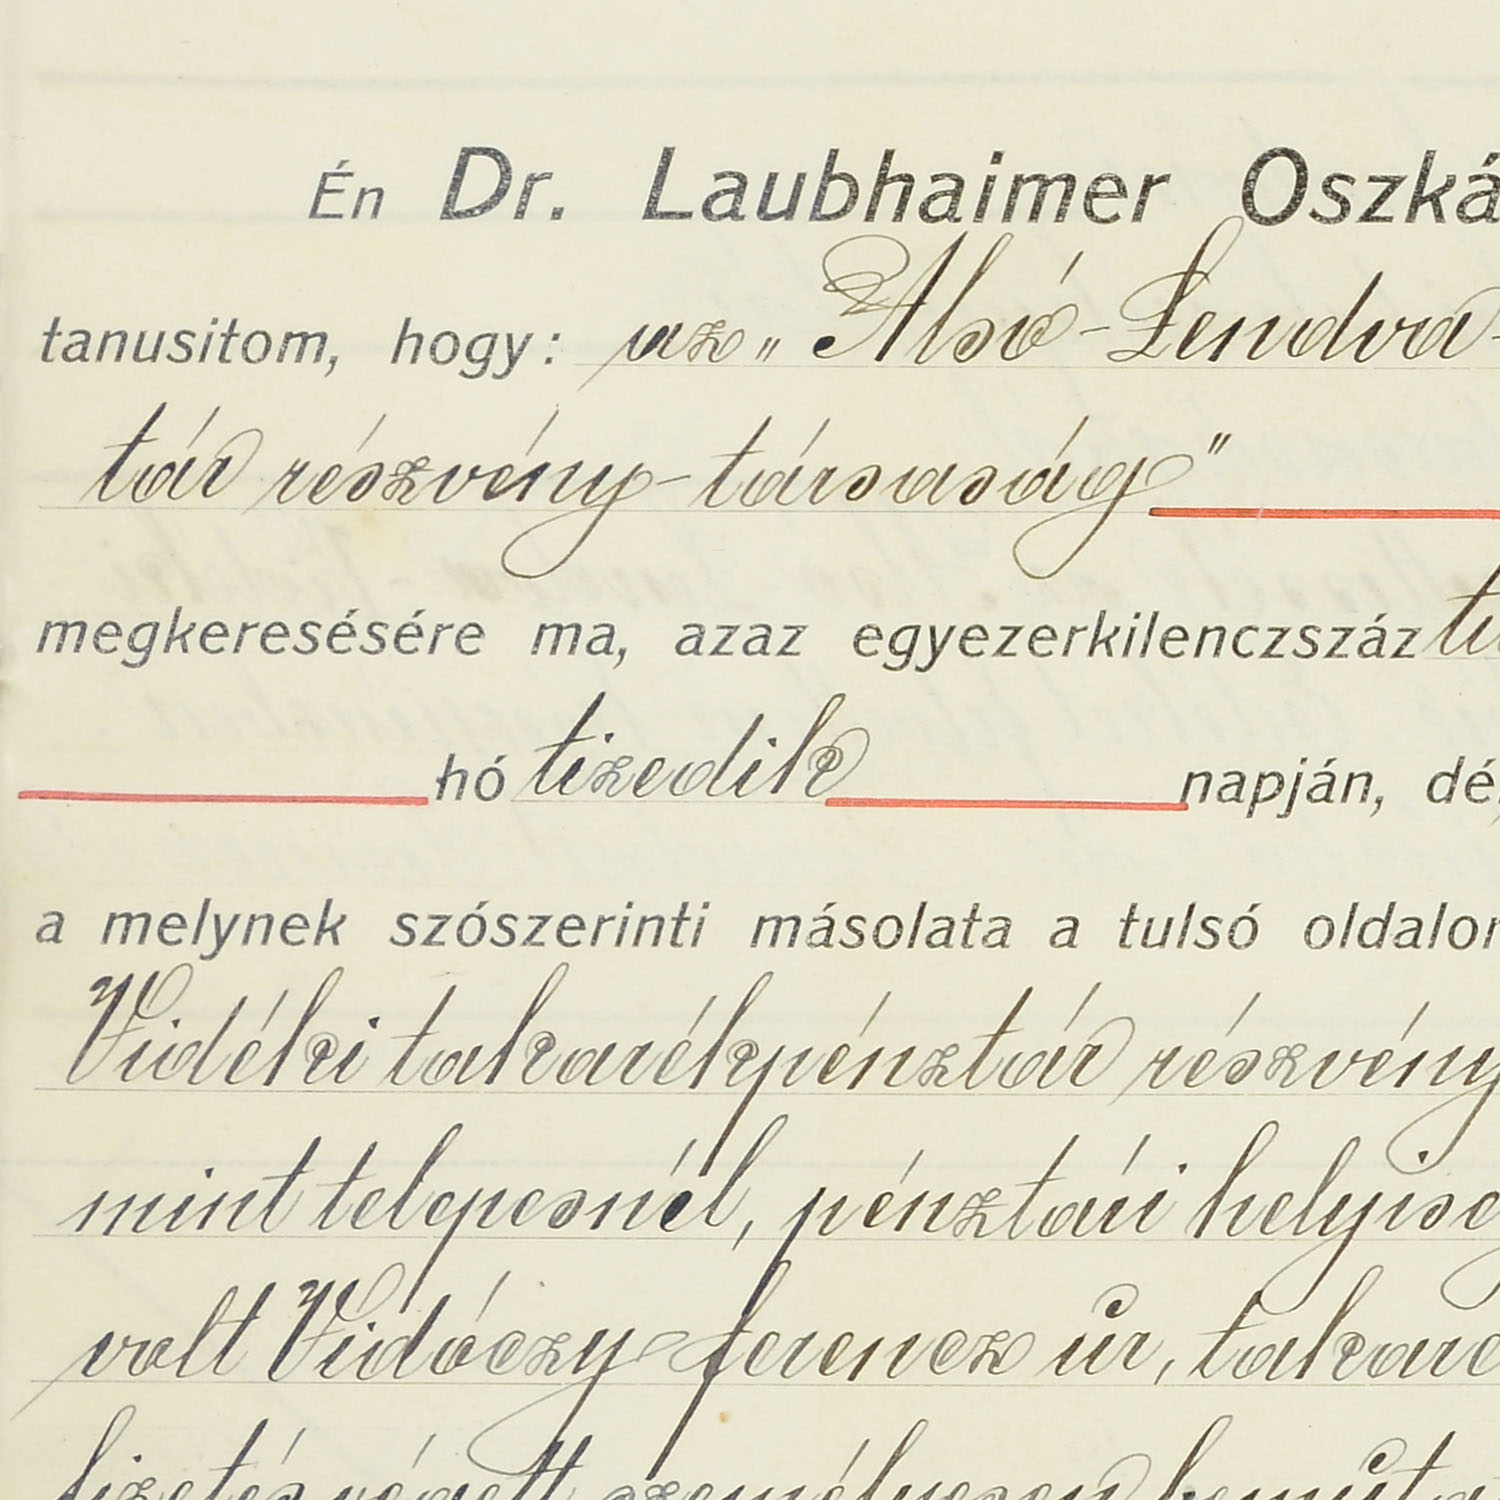 Én Dr. Laubhaimer Oszká
tanusitom, hogy: az „Alsó-Lendva-
tár részvény-társaság"
megkeresésére ma, azaz egyezerkilenczszáz ti
hó tizedik napján, dé
a melynek szószerinti másolata a tulsó oldalon
Vidéki takarékpénztár részvény
mint telepesnél, pénztári helyisé
volt Vidóczy Ferencz úr, takaré
fizetés végett személyesen bemuta